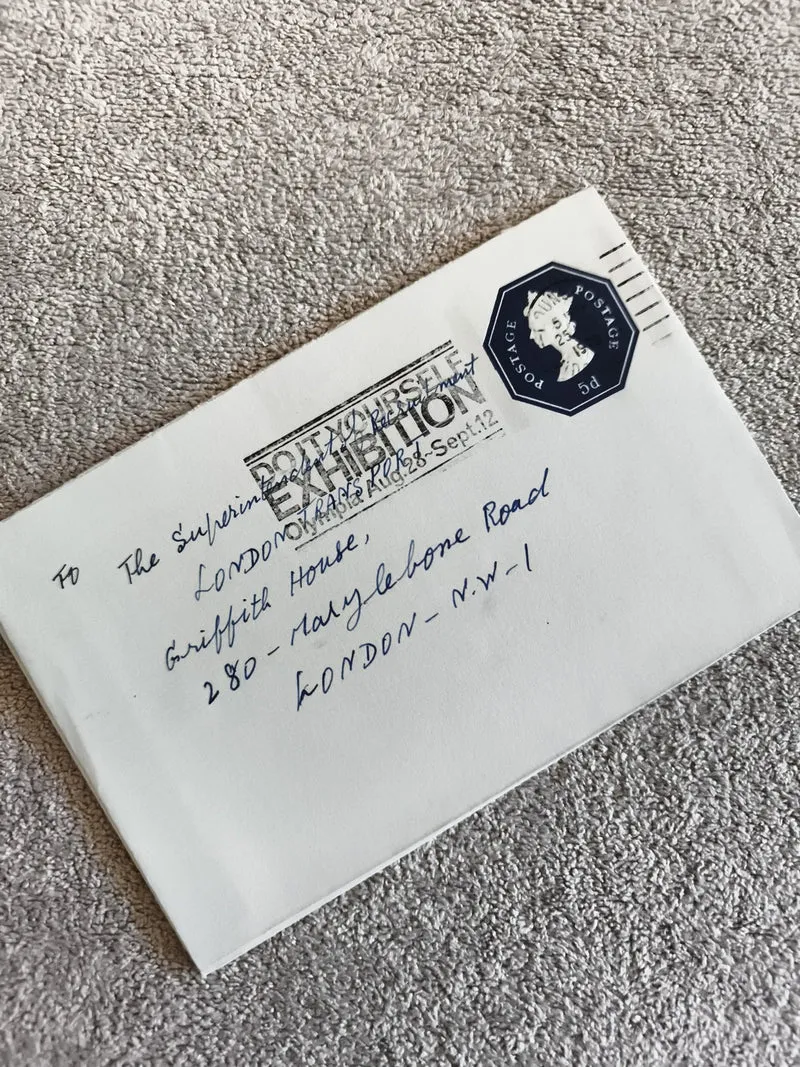 POSTAGE POSTAGE
5d
DO IT YOURSELF
EXHIBITION
Olympia Aug.28-Sept.12
To The Superintendent of Recruitment
LONDON TRANSPORT
Griffith House,
280 - Marylebone Road
LONDON - N.W-1